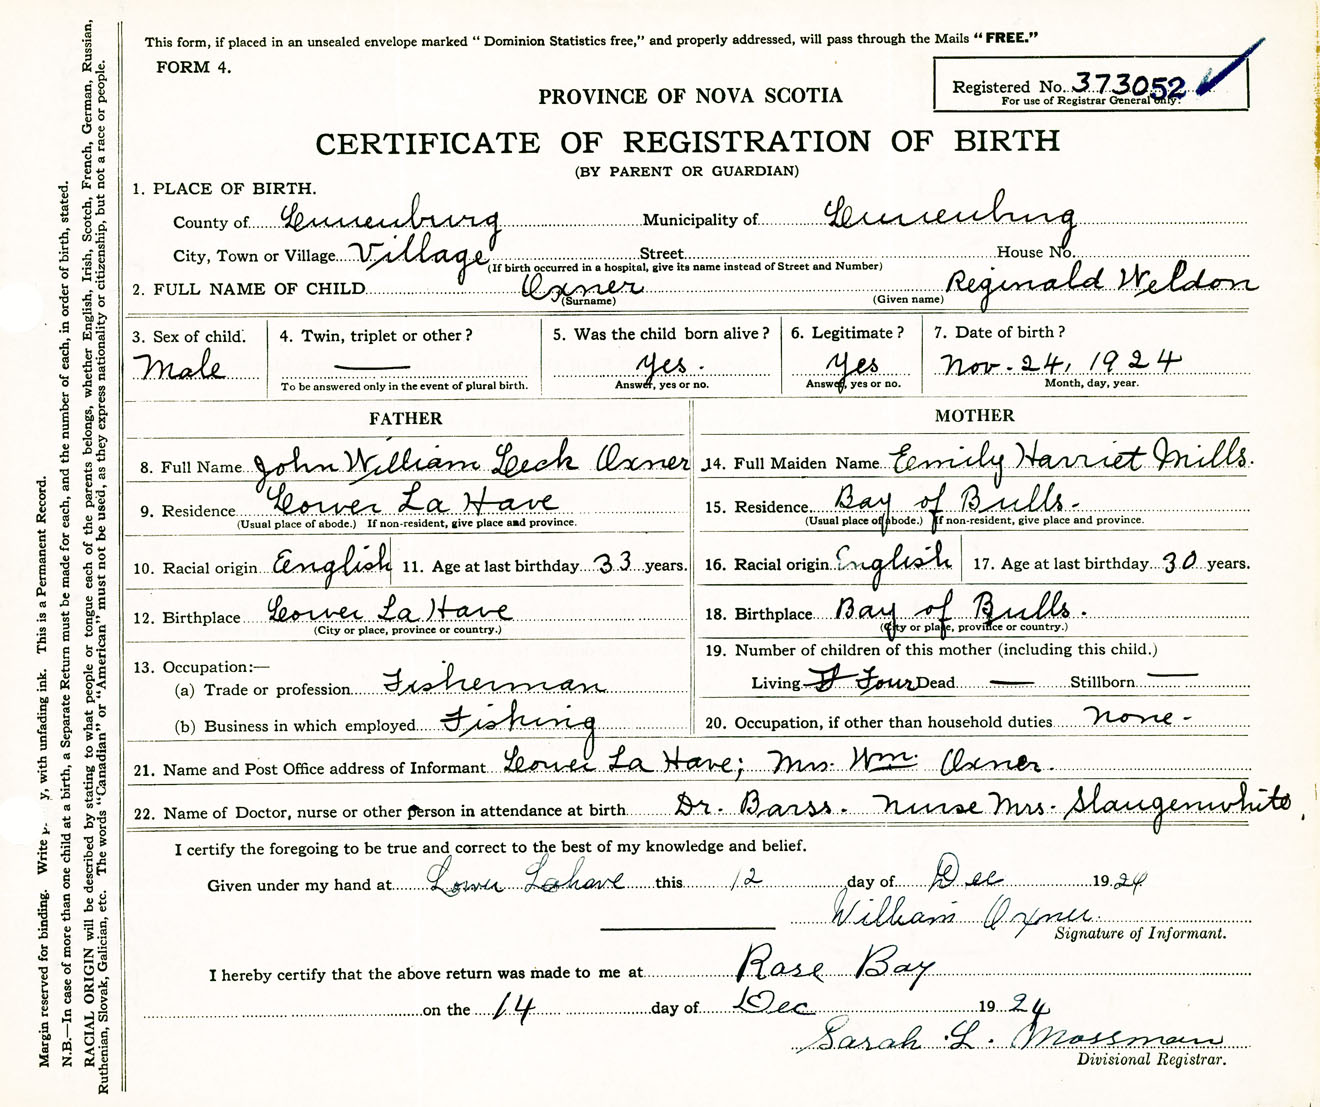 This form, if placed in an unsealed envelope marked "Dominion Statistics free," and properly addressed, will pass through the Mails "FREE."
FORM 4.
Registered No. 373052
For use of Registrar General only.
PROVINCE OF NOVA SCOTIA
CERTIFICATE OF REGISTRATION OF BIRTH
(BY PARENT OR GUARDIAN)
1. PLACE OF BIRTH.
County of Lunenburg Municipality of Lunenburg
City, Town or Village Village Street House No.
(If birth occurred in a hospital, give its name instead of Street and Number)
2. FULL NAME OF CHILD Oxner Reginald Weldon
(Surname) (Given name)
3. Sex of child. 4. Twin, triplet or other? 5. Was the child born alive? 6. Legitimate? 7. Date of birth?
Male — yes. Yes Nov. 24, 1924
To be answered only in the event of plural birth. Answer, yes or no. Answer, yes or no. Month, day, year.
FATHER MOTHER
8. Full Name John William Leck Oxner 14. Full Maiden Name Emily Harriet Mills.
9. Residence Lower La Have 15. Residence Bay of Bulls.
(Usual place of abode.) If non-resident, give place and province. (Usual place of abode.) If non-resident, give place and province.
10. Racial origin English 11. Age at last birthday 33 years. 16. Racial origin English 17. Age at last birthday 30 years.
12. Birthplace Lower La Have 18. Birthplace Bay of Bulls.
(City or place, province or country.) (City or place, province or country.)
13. Occupation:— 19. Number of children of this mother (including this child.)
(a) Trade or profession Fisherman Living Four Dead — Stillborn —
(b) Business in which employed Fishing 20. Occupation, if other than household duties none-
21. Name and Post Office address of Informant Lower La Have; Mrs. Wm. Oxner.
22. Name of Doctor, nurse or other person in attendance at birth Dr. Barss. Nurse Mrs. Slaugenwhite.
I certify the foregoing to be true and correct to the best of my knowledge and belief.
Given under my hand at Lower Lahave this 12 day of Dec 1924
William Oxner.
Signature of Informant.
I hereby certify that the above return was made to me at Rose Bay
on the 14 day of Dec 1924
Sarah L. Mossman
Divisional Registrar.
Margin reserved for binding. Write y, with unfading ink. This is a Permanent Record.
N.B.—In case of more than one child at a birth, a Separate Return must be made for each, and the number of each, in order of birth, stated.
RACIAL ORIGIN will be described by stating to what people or tongue each of the parents belongs, whether English, Irish, Scotch, French, German, Russian,
Ruthenian, Slovak, Galician, etc. The words "Canadian" or "American" must not be used, as they express nationality or citizenship, but not a race or people.